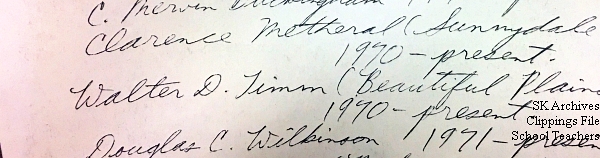 C. Mervin Buckingham
Clarence Metheral (Sunnydale
1970 - present.
Walter D. Timm (Beautiful Plains
1970 - present
SK Archives
Clippings File
School Teachers
Douglas C. Wilkinson 1971 - present